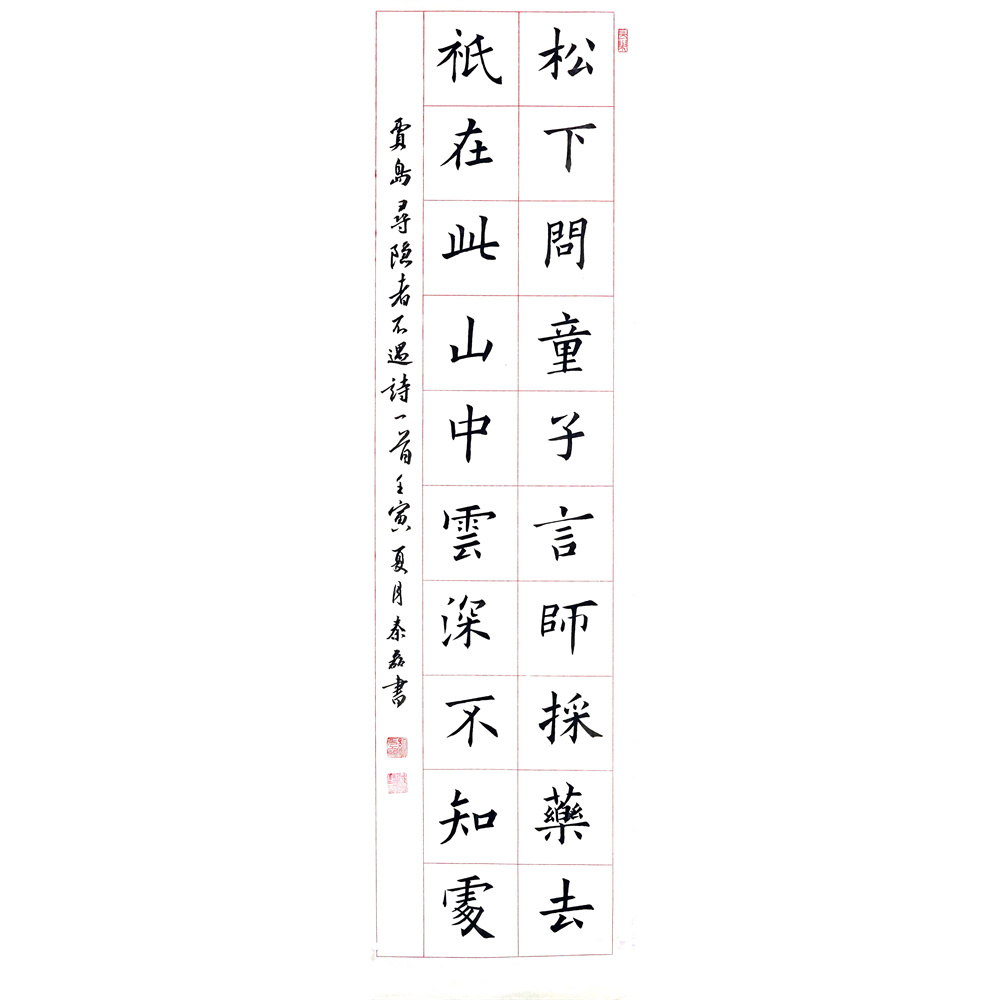 松下問童子言師採藥去
祇在此山中雲深不知處
賈島尋隐者不遇詩一首壬寅夏月秦磊書